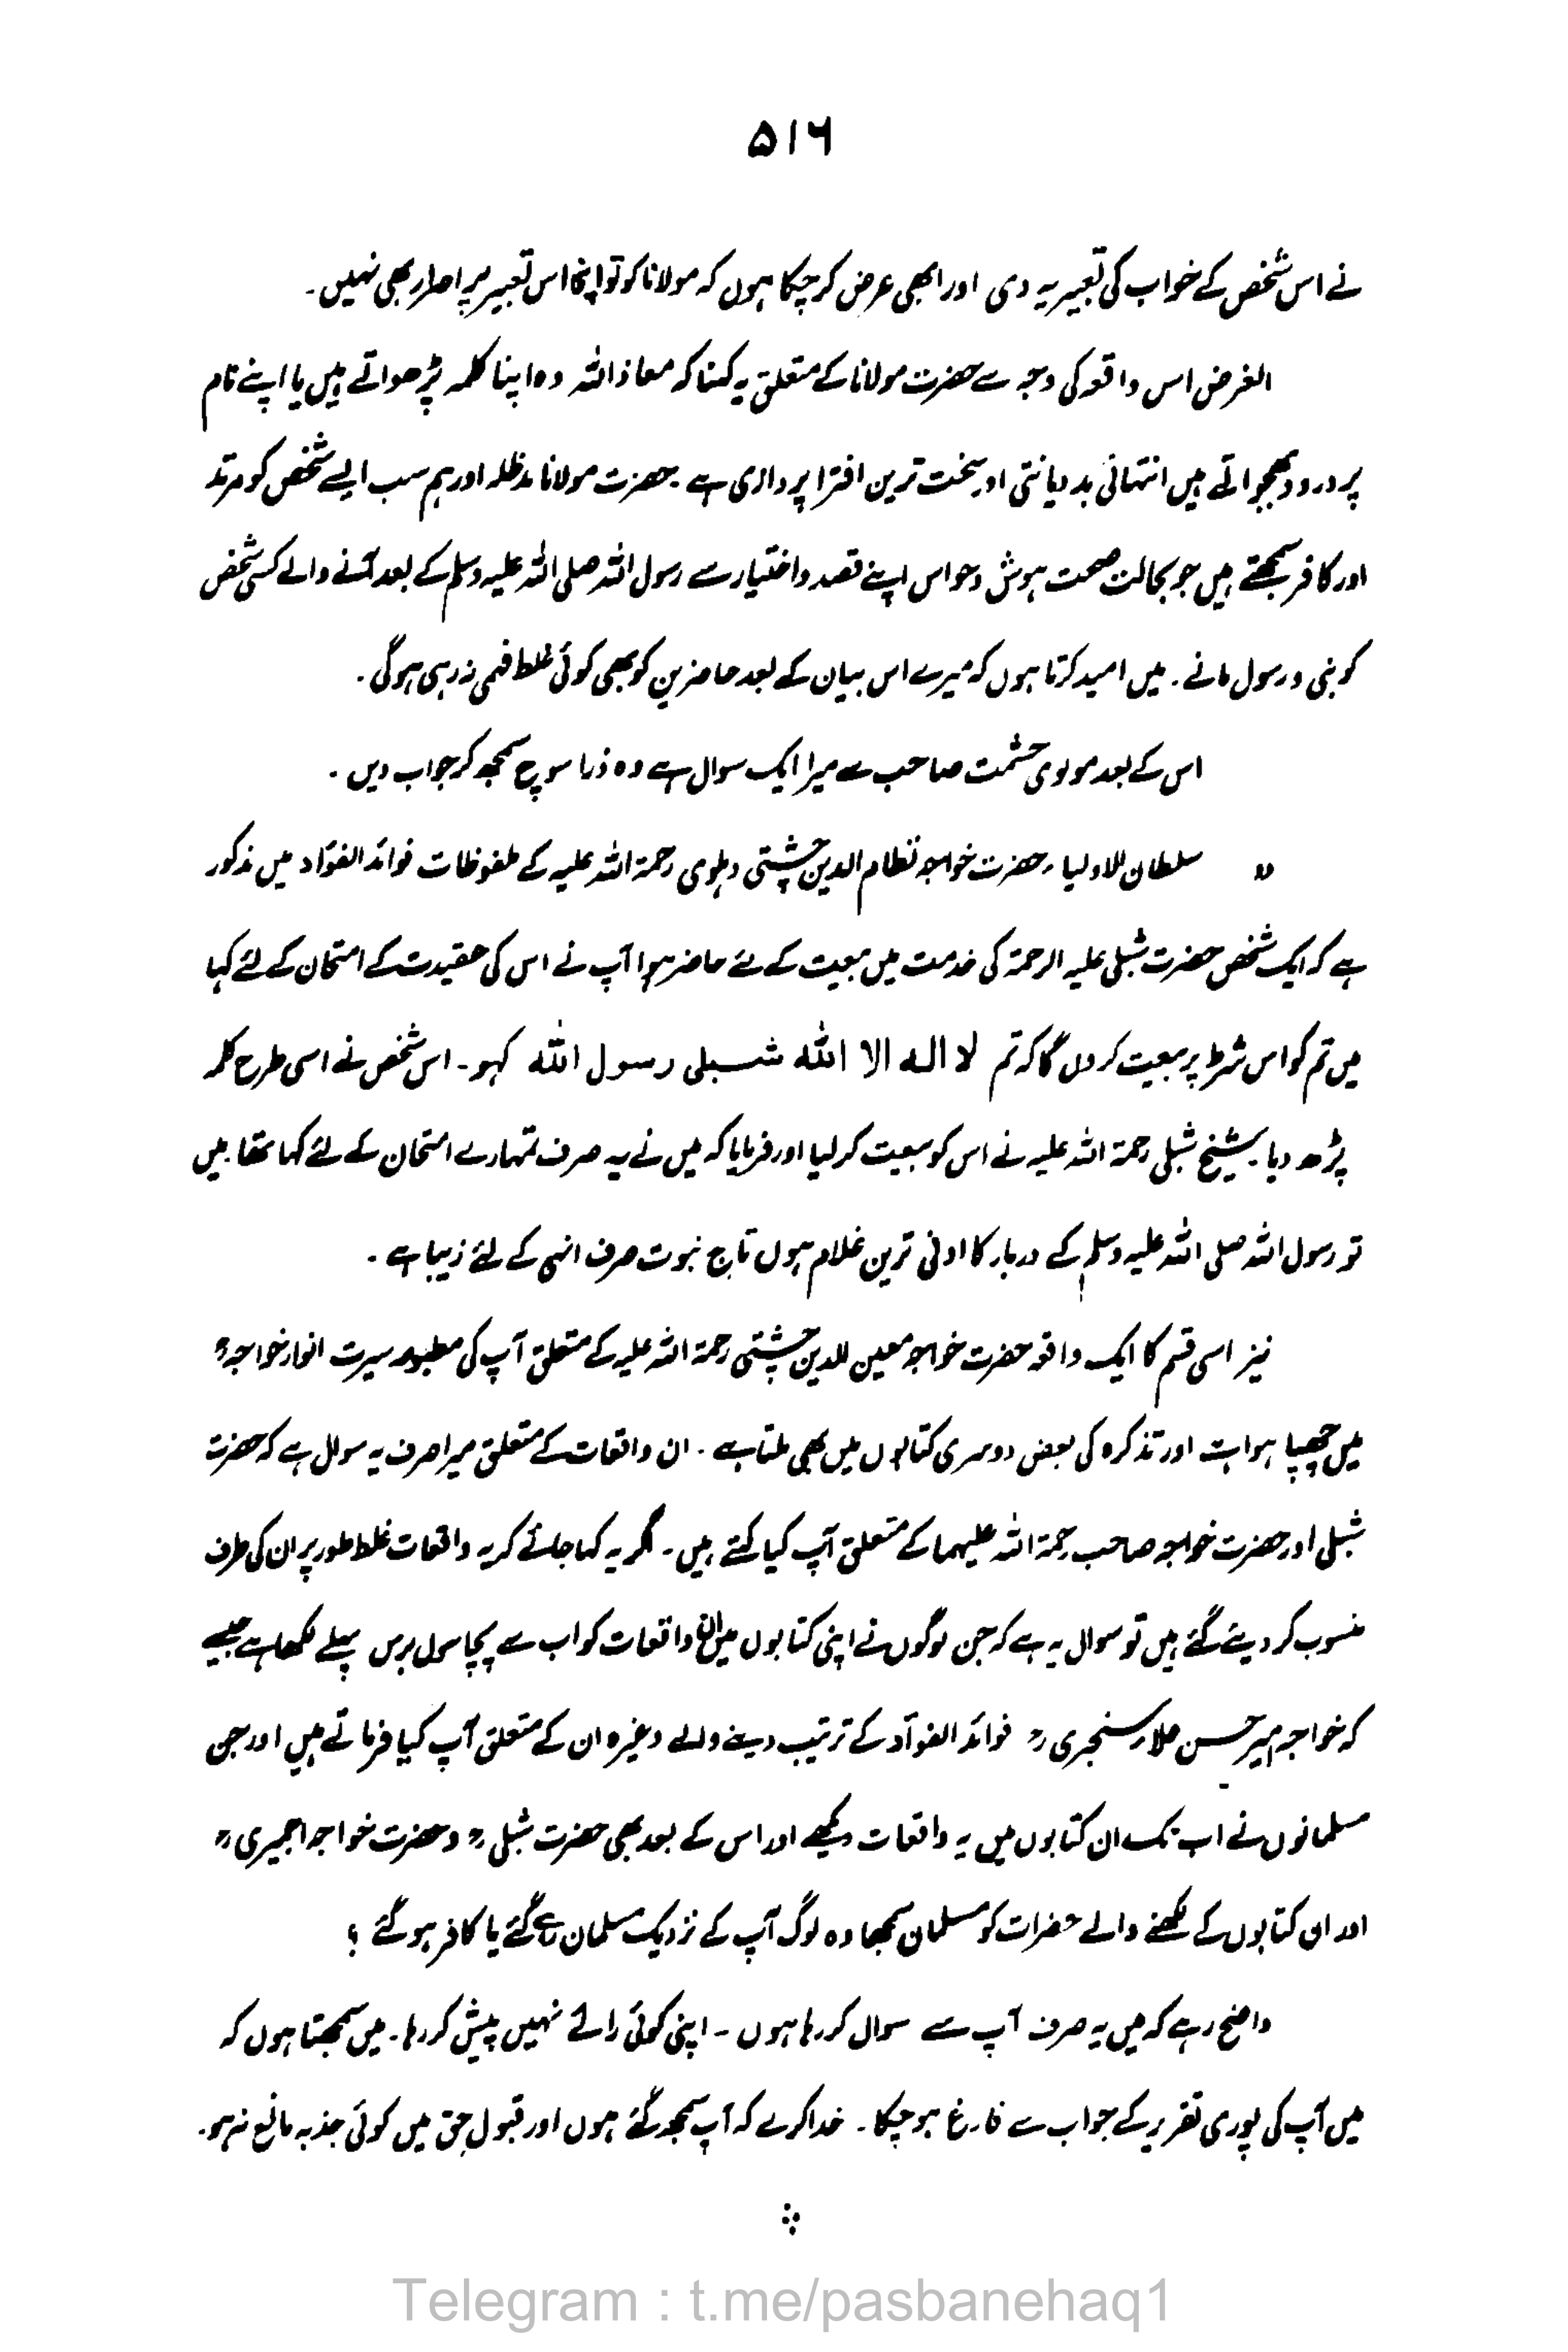 ۵۱۶
نے اس شخص کے خواب کی تعبیر یہ دی اور ابھی عرض کر چکا ہوں کہ مولانا کو تو اپنی اس تعبیر پر اصرار بھی نہیں۔
الغرض اس واقعہ کی وجہ سے حضرت مولانا کے متعلق یہ کہنا کہ معاذ اللہ وہ اپنا کلمہ پڑھواتے ہیں یا اپنے نام
پر درود بھجواتے ہیں انتہائی بددیانتی اور سخت ترین افترا پردازی ہے۔ حضرت مولانا مدظلہ اور ہم سب ایسے شخص کو مرتد
اور کافر سمجھتے ہیں جو بحالت صحت ہوش و حواس اپنے قصد و اختیار سے رسول اللہ صلی اللہ علیہ وسلم کے بعد آنے والے کسی شخص
کو نبی و رسول مانے۔ میں امید کرتا ہوں کہ میرے اس بیان کے بعد حاضرین کو بھی کوئی غلط فہمی نہ رہی ہوگی۔
اس کے بعد مولوی حشمت صاحب سے میرا ایک سوال ہے وہ ذرا سوچ سمجھ کر جواب دیں۔
" سلطان الاولیاء حضرت خواجہ نظام الدین چشتی دہلوی رحمۃ اللہ علیہ کے ملفوظات فوائد الفواد میں مذکور
ہے کہ ایک شخص حضرت شبلی علیہ الرحمۃ کی خدمت میں بیعت کے لئے حاضر ہوا آپ نے اس کی عقیدت کے امتحان کے لئے کہا
میں تم کو اس شرط پر بیعت کروں گا کہ تم لا الہ الا اللہ شبلی رسول اللہ کہو۔ اس شخص نے اسی طرح کلمہ
پڑھ دیا۔ شیخ شبلی رحمۃ اللہ علیہ نے اس کو بیعت کر لیا اور فرمایا کہ میں نے یہ صرف تمہارے امتحان کے لئے کہا تھا۔ میں
تو رسول اللہ صلی اللہ علیہ وسلم کے دربار کا ادنی ترین غلام ہوں تاج نبوت صرف انہی کے لئے زیبا ہے۔
نیز اسی قسم کا ایک واقعہ حضرت خواجہ معین الدین چشتی رحمۃ اللہ علیہ کے متعلق آپ کی مطبوعہ سیرت انوار خواجہ"
میں چھپا ہوا ہے اور تذکرہ کی بعض دوسری کتابوں میں بھی ملتا ہے۔ ان واقعات کے متعلق میرا صرف یہ سوال ہے کہ حضرت
شبلی اور حضرت خواجہ صاحب رحمۃ اللہ علیہما کے متعلق آپ کیا کہتے ہیں۔ اگر یہ کہا جائے کہ یہ واقعات غلط طور پر ان کی طرف
منسوب کر دیئے گئے ہیں تو سوال یہ ہے کہ جن لوگوں نے اپنی کتابوں میں ان واقعات کو اب سے پچاسوں برس پہلے لکھا ہے جیسے
کہ خواجہ میر حسن علاء سنجری رح فوائد الفوآد کے ترتیب دینے والے وغیرہ ان کے متعلق آپ کیا فرماتے ہیں اور جن
مسلمانوں نے اب تک ان کتابوں میں یہ واقعات دیکھے اور اس کے بعد بھی حضرت شبلی رح و حضرت خواجہ اجمیری رح
اور ان کتابوں کے لکھنے والے حضرات کو مسلمان سمجھا وہ لوگ آپ کے نزدیک مسلمان رہ گئے یا کافر ہو گئے ؟
واضح رہے کہ میں یہ صرف آپ سے سوال کر رہا ہوں۔ اپنی کوئی رائے نہیں پیش کر رہا۔ میں سمجھتا ہوں کہ
میں آپ کی پوری تقریر کے جواب سے فارغ ہو چکا۔ خدا کرے کہ آپ سمجھ گئے ہوں اور قبول حق میں کوئی جذبہ مانع نہ ہو۔
Telegram : t.me/pasbanehaq1